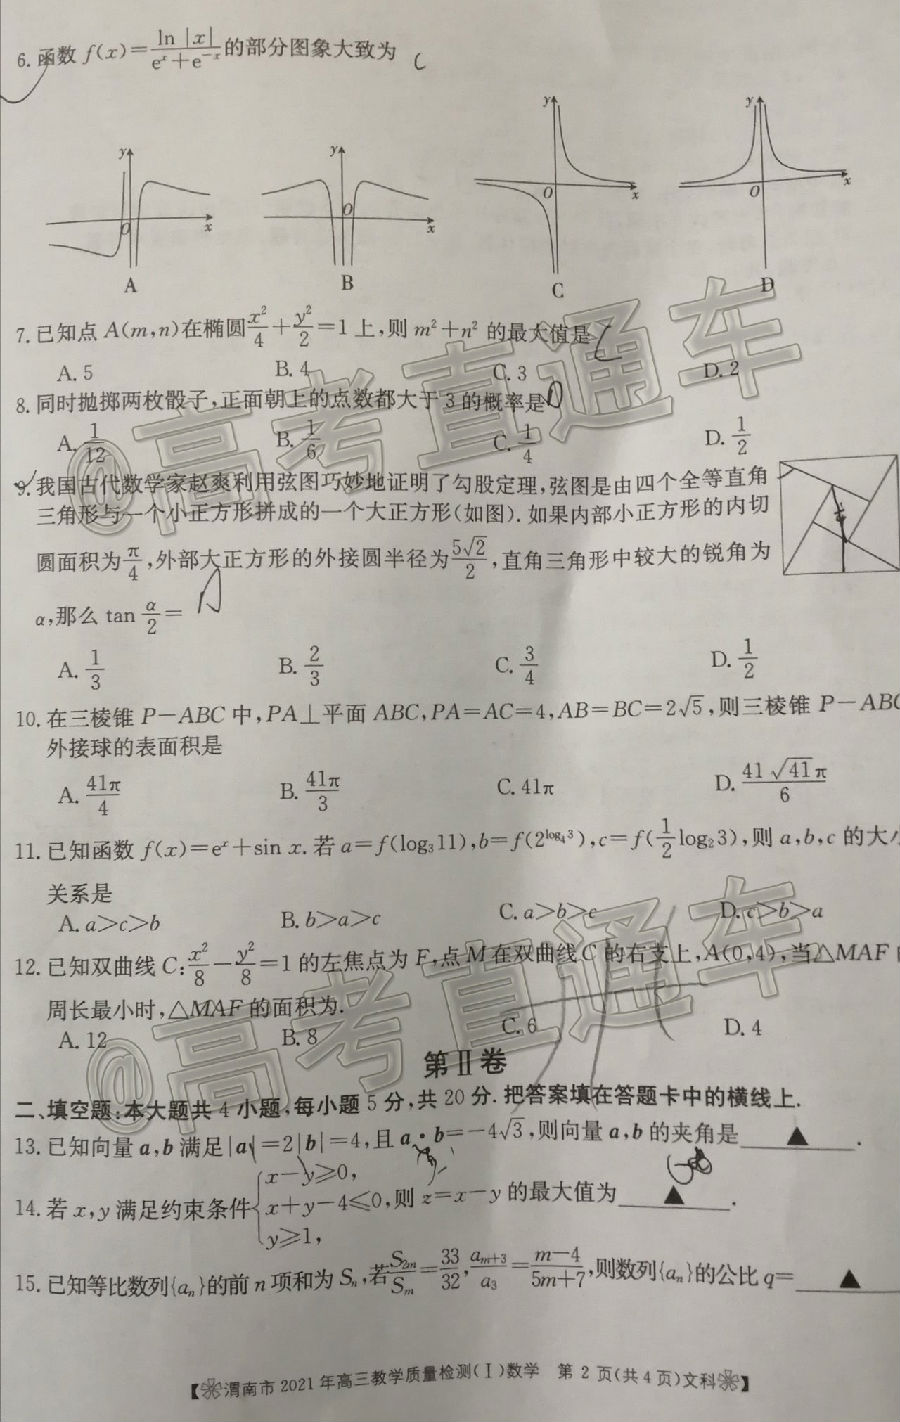 6. 函数 f(x)=\frac{ln |x|}{e^x+e^{-x}} 的部分图象大致为 C
y y y y
O x O x O x O x
A B C D
7. 已知点 A(m,n)在椭圆 \frac{x^2}{4}+\frac{y^2}{2}=1 上,则 m²+n² 的最大值是
A. 5 B. 4 C. 3 D. 2
8. 同时抛掷两枚骰子,正面朝上的点数都大于 3 的概率是
A. \frac{1}{12} B. \frac{1}{6} C. \frac{1}{4} D. \frac{1}{2}
9. 我国古代数学家赵爽利用弦图巧妙地证明了勾股定理,弦图是由四个全等直角
三角形与一个小正方形拼成的一个大正方形(如图). 如果内部小正方形的内切
圆面积为 \frac{π}{4},外部大正方形的外接圆半径为 \frac{5√2}{2},直角三角形中较大的锐角为
α,那么 tan \frac{α}{2}= A
A. \frac{1}{3} B. \frac{2}{3} C. \frac{3}{4} D. \frac{1}{2}
10. 在三棱锥 P-ABC 中,PA⊥平面 ABC,PA=AC=4,AB=BC=2√5,则三棱锥 P-ABC
外接球的表面积是
A. \frac{41π}{4} B. \frac{41π}{3} C. 41π D. \frac{41√41π}{6}
11. 已知函数 f(x)=e^x+sin x. 若 a=f(log₃11),b=f(2^{log₄3}),c=f(\frac{1}{2}log₂3),则 a,b,c 的大小
关系是
A. a>c>b B. b>a>c C. a>b>c D. c>b>a
12. 已知双曲线 C:\frac{x^2}{8}-\frac{y^2}{8}=1 的左焦点为 F,点 M 在双曲线 C 的右支上,A(0,4),当△MAF
周长最小时,△MAF 的面积为.
A. 12 B. 8 C. 6 D. 4
第Ⅱ卷
二、填空题:本大题共 4 小题,每小题 5 分,共 20 分. 把答案填在答题卡中的横线上.
13. 已知向量 a,b 满足|a|=2|b|=4,且 a·b=-4√3,则向量 a,b 的夹角是 ▲ .
14. 若 x,y 满足约束条件 { x-y≥0, x+y-4≤0, y≥1, 则 z=x-y 的最大值为 ▲ .
15. 已知等比数列{aₙ}的前 n 项和为 Sₙ,若 \frac{S_{2m}}{S_m}=\frac{33}{32}, \frac{a_{m+3}}{a_3}=\frac{m-4}{5m+7},则数列{aₙ}的公比 q= ▲
【渭南市 2021 年高三教学质量检测(Ⅰ)数学 第 2 页(共 4 页)文科】
@高考直通车
@高考直通车